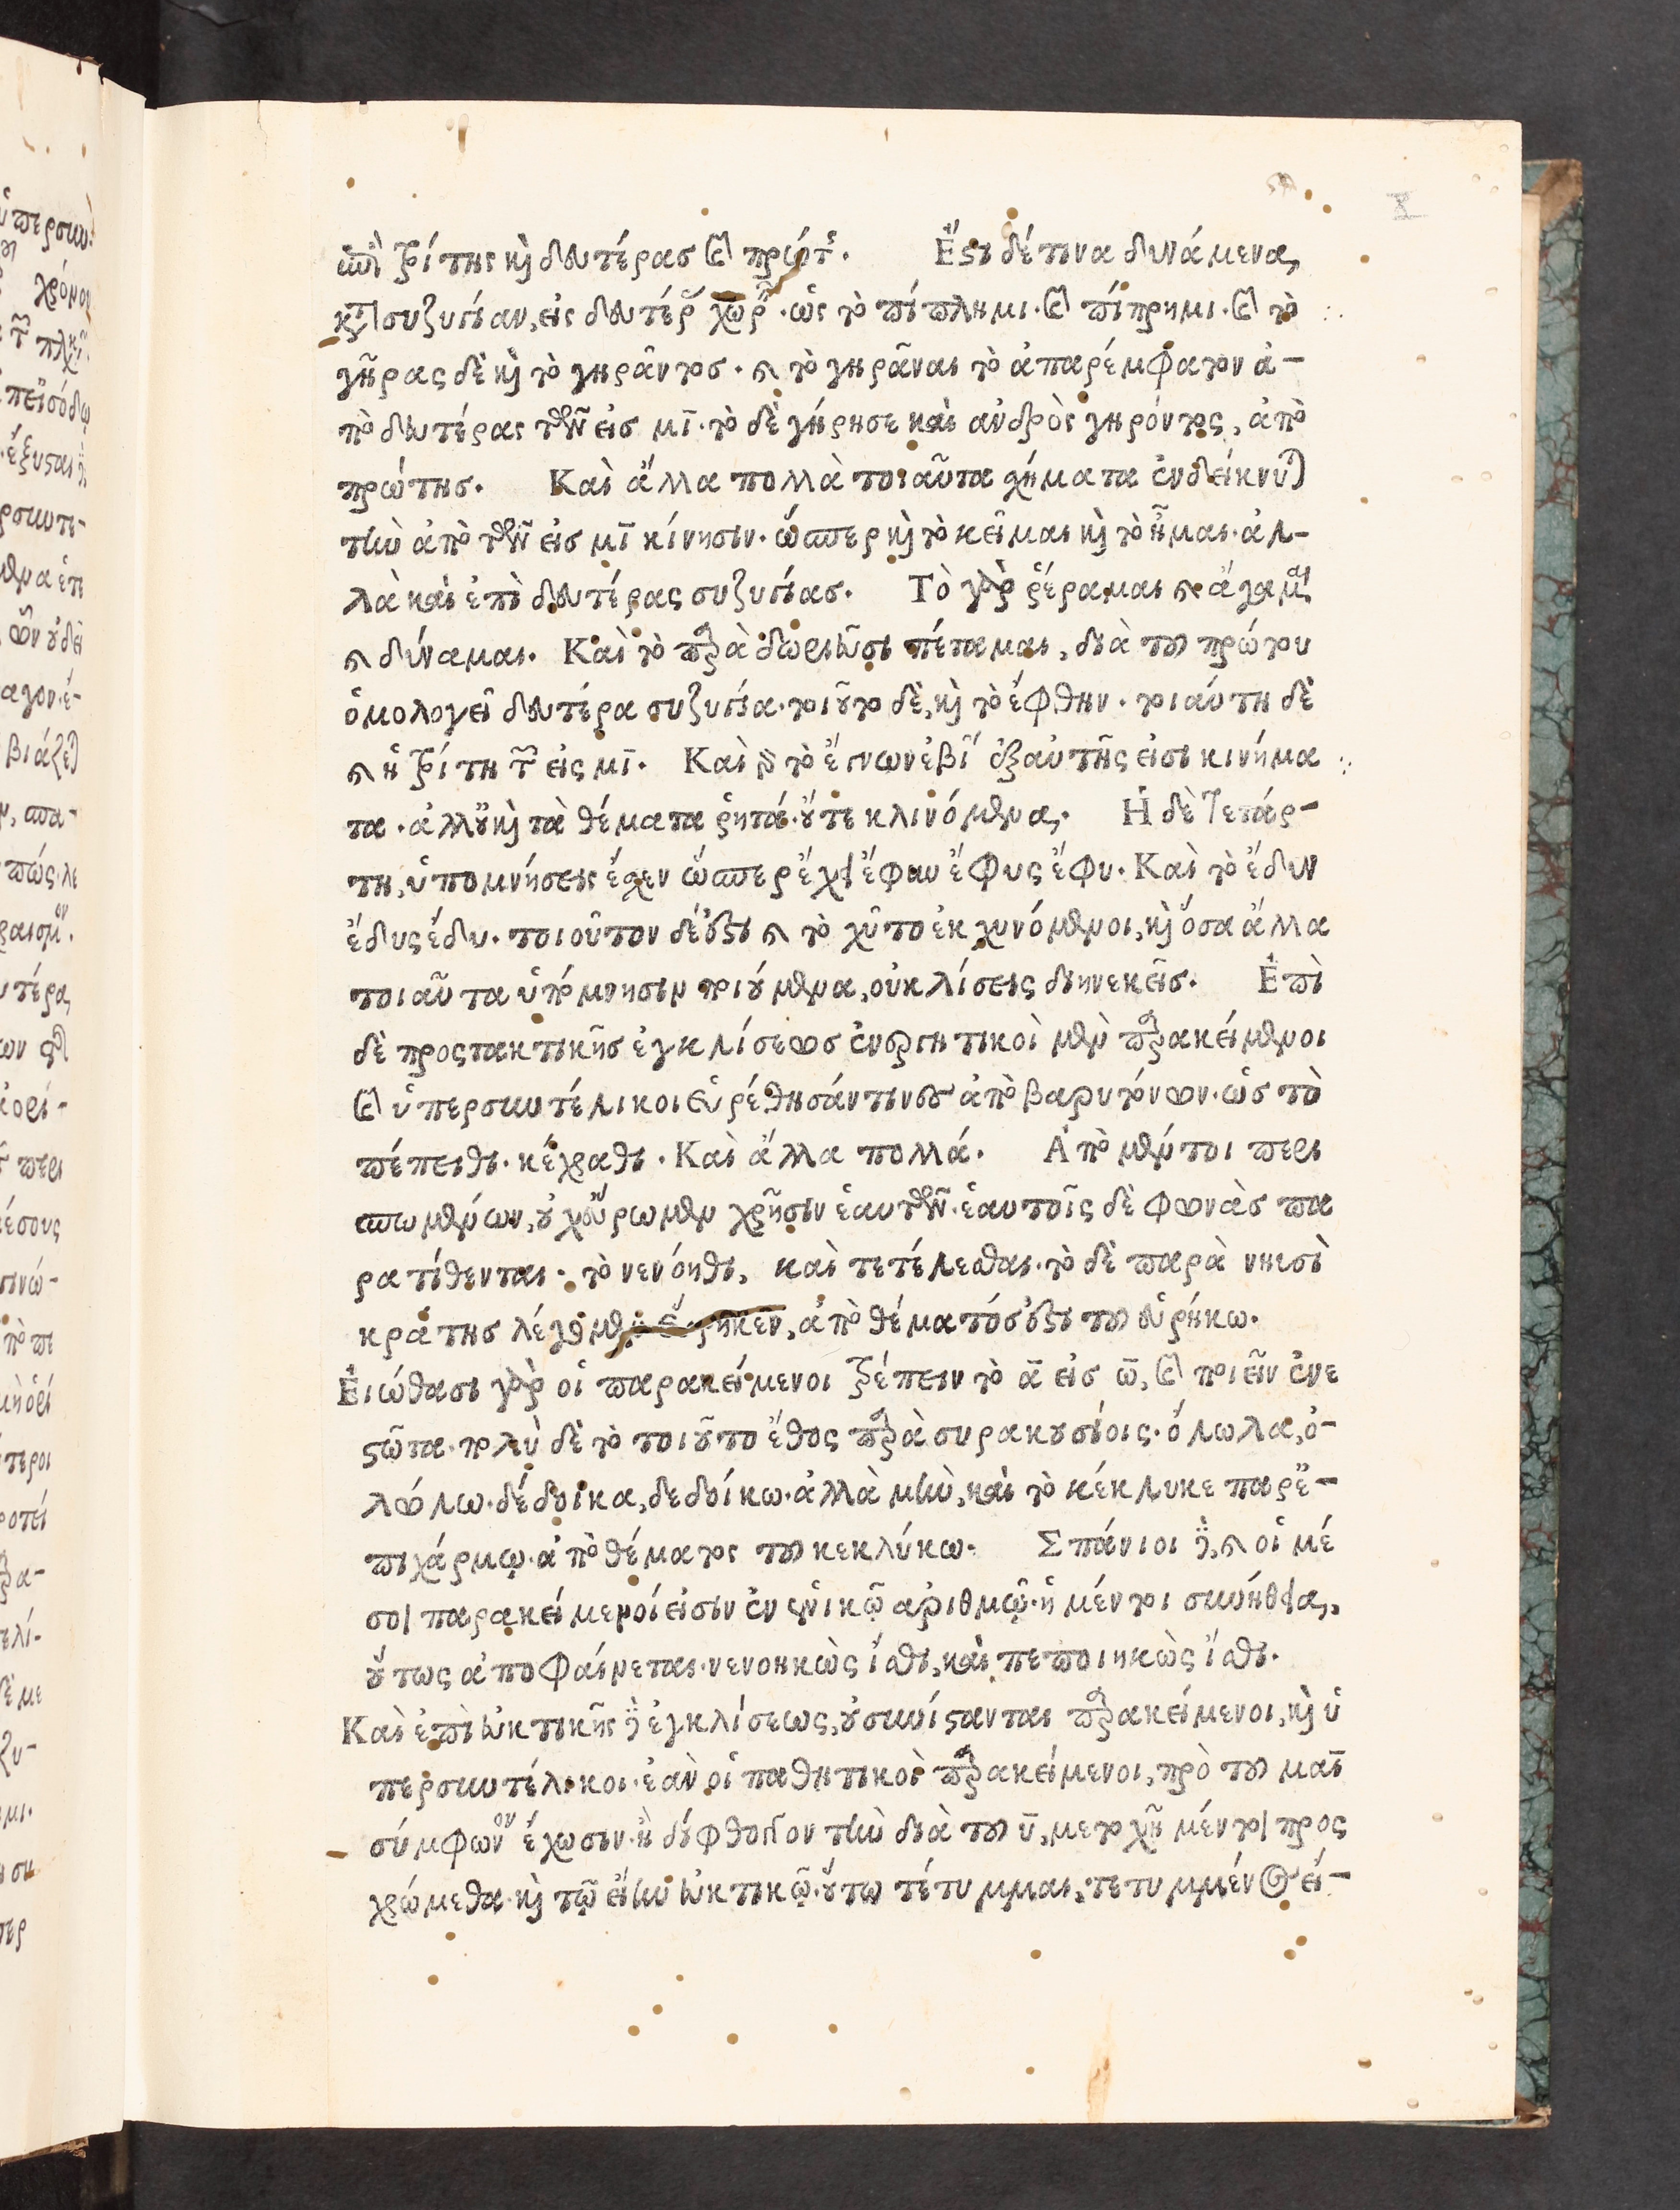 ἐπὶ τρίτης καὶ δευτέρας καὶ πρώτης. Ἔστι δέ τινα δυνάμενα,
κατὰ συζυγίαν, εἰς δευτέραν χωρεῖν. ὡς τὸ πίπλημι. καὶ πίπρημι. καὶ τὸ
γῆρας δὲ καὶ τὸ γηρᾶντος. καὶ τὸ γηρᾶναι τὸ ἀπαρέμφατον ἀ-
πὸ δευτέρας τῶν εἰς μι. τὸ δὲ γήρησε καὶ ανδρὸς γηρόντος, ἀπὸ
πρώτης. Καὶ ἄλλα πολλὰ τοιαῦτα ῥήματα ἐνδείκνυται
τὴν ἀπὸ τῶν εἰς μι κίνησιν. ὥσπερ καὶ τὸ κεῖμαι καὶ τὸ ἧμαι. ἀλ-
λὰ καὶ ἐπὶ δευτέρας συζυγίας. Τὸ γὰρ ἔραμαι καὶ ἄγαμαι
καὶ δύναμαι. Καὶ τὸ παρὰ δωριεῦσι πέταμαι, διὰ τοῦ πρώτου
ὁμολογεῖ δευτέρα συζυγία. τοιοῦτο δὲ, καὶ τὸ ἔφθην. τοιαύτη δὲ
καὶ ἡ τρίτη τῶν εἰς μι. Καὶ γὰρ τὸ ἔγνων ἐβίων ἐξ αὐτῆς εἰσι κινήμα
τα. ἀλλ' οὐ καὶ τὰ θέματα ῥητά. οὔτε κλινόμενα. Ἡ δὲ τετάρ-
τη, ὑπομνήσεις ἔχεν ὥσπερ ἔχει ἔφυν ἔφυς ἔφυ. Καὶ τὸ ἔδυν
ἔδυς ἔδυ. τοιοῦτον δέ ἐστι καὶ τὸ χῦτο ἐκχυνόμενοι, καὶ ὅσα ἄλλα
τοιαῦτα ὑπόμνησιν ποιούμενα, οὐ κλίσεις διηνεκεῖς. Ἐπὶ
δὲ προςτακτικῆς ἐγκλίσεως ἐνεργητικοὶ μὲν παρακείμενοι
καὶ ὑπερσυντέλικοι εὑρέθησάν τινες ἀπὸ βαρυτόνων. ὡς τὸ
πέπεισθι. κέκραχθι. Καὶ ἄλλα πολλά. Ἀπὸ μέντοι περι
σπωμένων, οὐχ εὕρωμεν χρῆσιν ἑαυτῶν. ἑαυτοῖς δὲ φωνὰς πα
ρατίθενται. τὸ νενόηθι, καὶ τετέλεσθαι. τὸ δὲ παρὰ νησὶ
κράτης λέγομεν εὕρηκεν, ἀπὸ θέματός ἐστι τοῦ εὑρήκω.
Εἰώθασι γὰρ οἱ παρακείμενοι τρέπειν τὸ α εἰς ω, καὶ ποιεῖν ἐνε
στῶτα. πλεῖον δὲ τὸ τοιοῦτο ἔθος παρὰ συρακουσίοις. ὄλωλα, ὀ-
λώλω. δέδοικα, δεδοίκω. ἀλλὰ μὴν, καὶ τὸ κέκλυκε παρ' ἐ-
πιχάρμῳ. ἀπὸ θέματος τοῦ κεκλύκω. Σπάνιοι δὲ, καὶ οἱ μέ
σοι παρακείμενοί εἰσιν ἐν ἑνικῷ ἀριθμῷ. ἡ μέντοι συνήθεια,
οὕτως ἀποφαίνεται. νενοηκὼς ἴσθι, καὶ πεποιηκὼς ἴσθι.
Καὶ ἐπὶ εὐκτικῆς δὲ ἐγκλίσεως, οὐ συνίστανται παρακείμενοι, καὶ ὑ
περσυντέλικοι. ἐὰν οἱ παθητικοὶ παρακείμενοι, πρὸ τοῦ μαι
σύμφωνον ἔχωσιν. ἢ δίφθογγον τὴν διὰ τοῦ υ, μετοχῇ μέντοι προς
χρώμεθα. καὶ τῷ εἴην εὐκτικῷ. οὕτω τέτυμμαι, τετυμμένος εἴ-